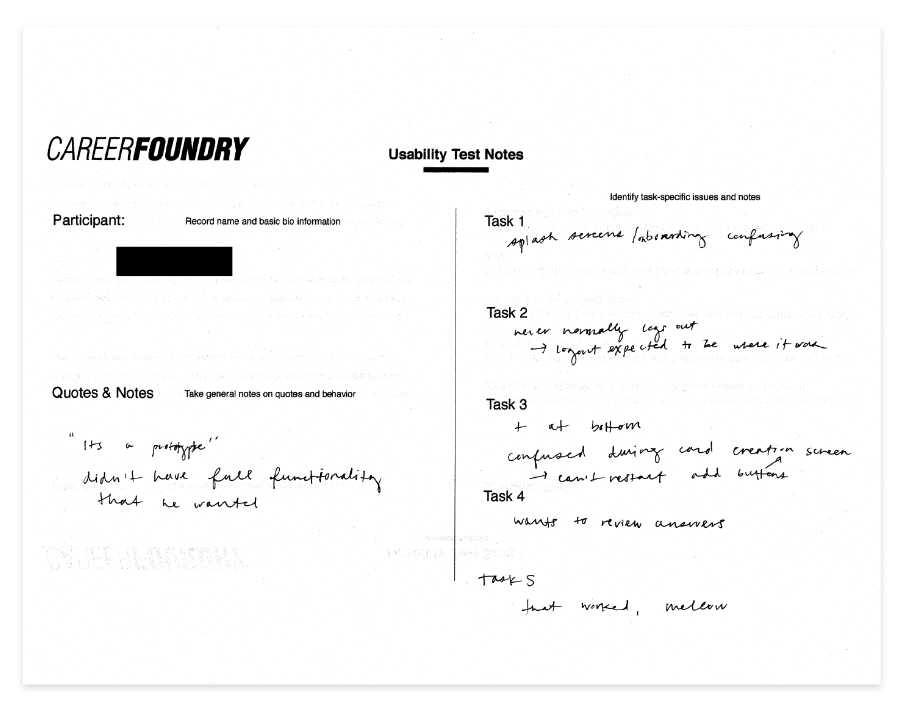 CAREERFOUNDRY
Usability Test Notes
Participant:
Record name and basic bio information
Quotes & Notes
Take general notes on quotes and behavior
"Its a prototype"
didn't have full functionality
that he wanted
Identify task-specific issues and notes
Task 1
splash screens/onboarding confusing
Task 2
never normally logs out
→ logout expected to be where it was
Task 3
+ at bottom
confused during card creation screen
→ can't restart add buttons
Task 4
wants to review answers
Task 5
that worked, mellow